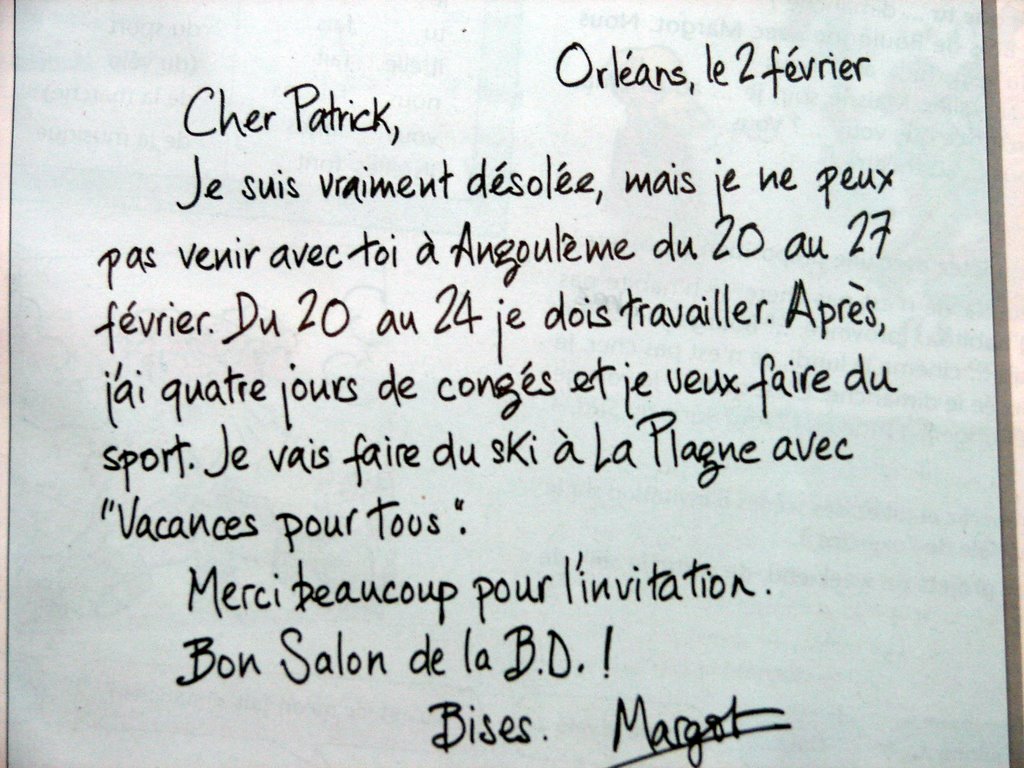 Orléans, le 2 février
Cher Patrick,
Je suis vraiment désolée, mais je ne peux
pas venir avec toi à Angoulème du 20 au 27
février. Du 20 au 24 je dois travailler. Après,
j'ai quatre jours de congés et je veux faire du
sport. Je vais faire du ski à La Plagne avec
"Vacances pour tous".
Merci beaucoup pour l'invitation.
Bon Salon de la B.D. !
Bises. Margot